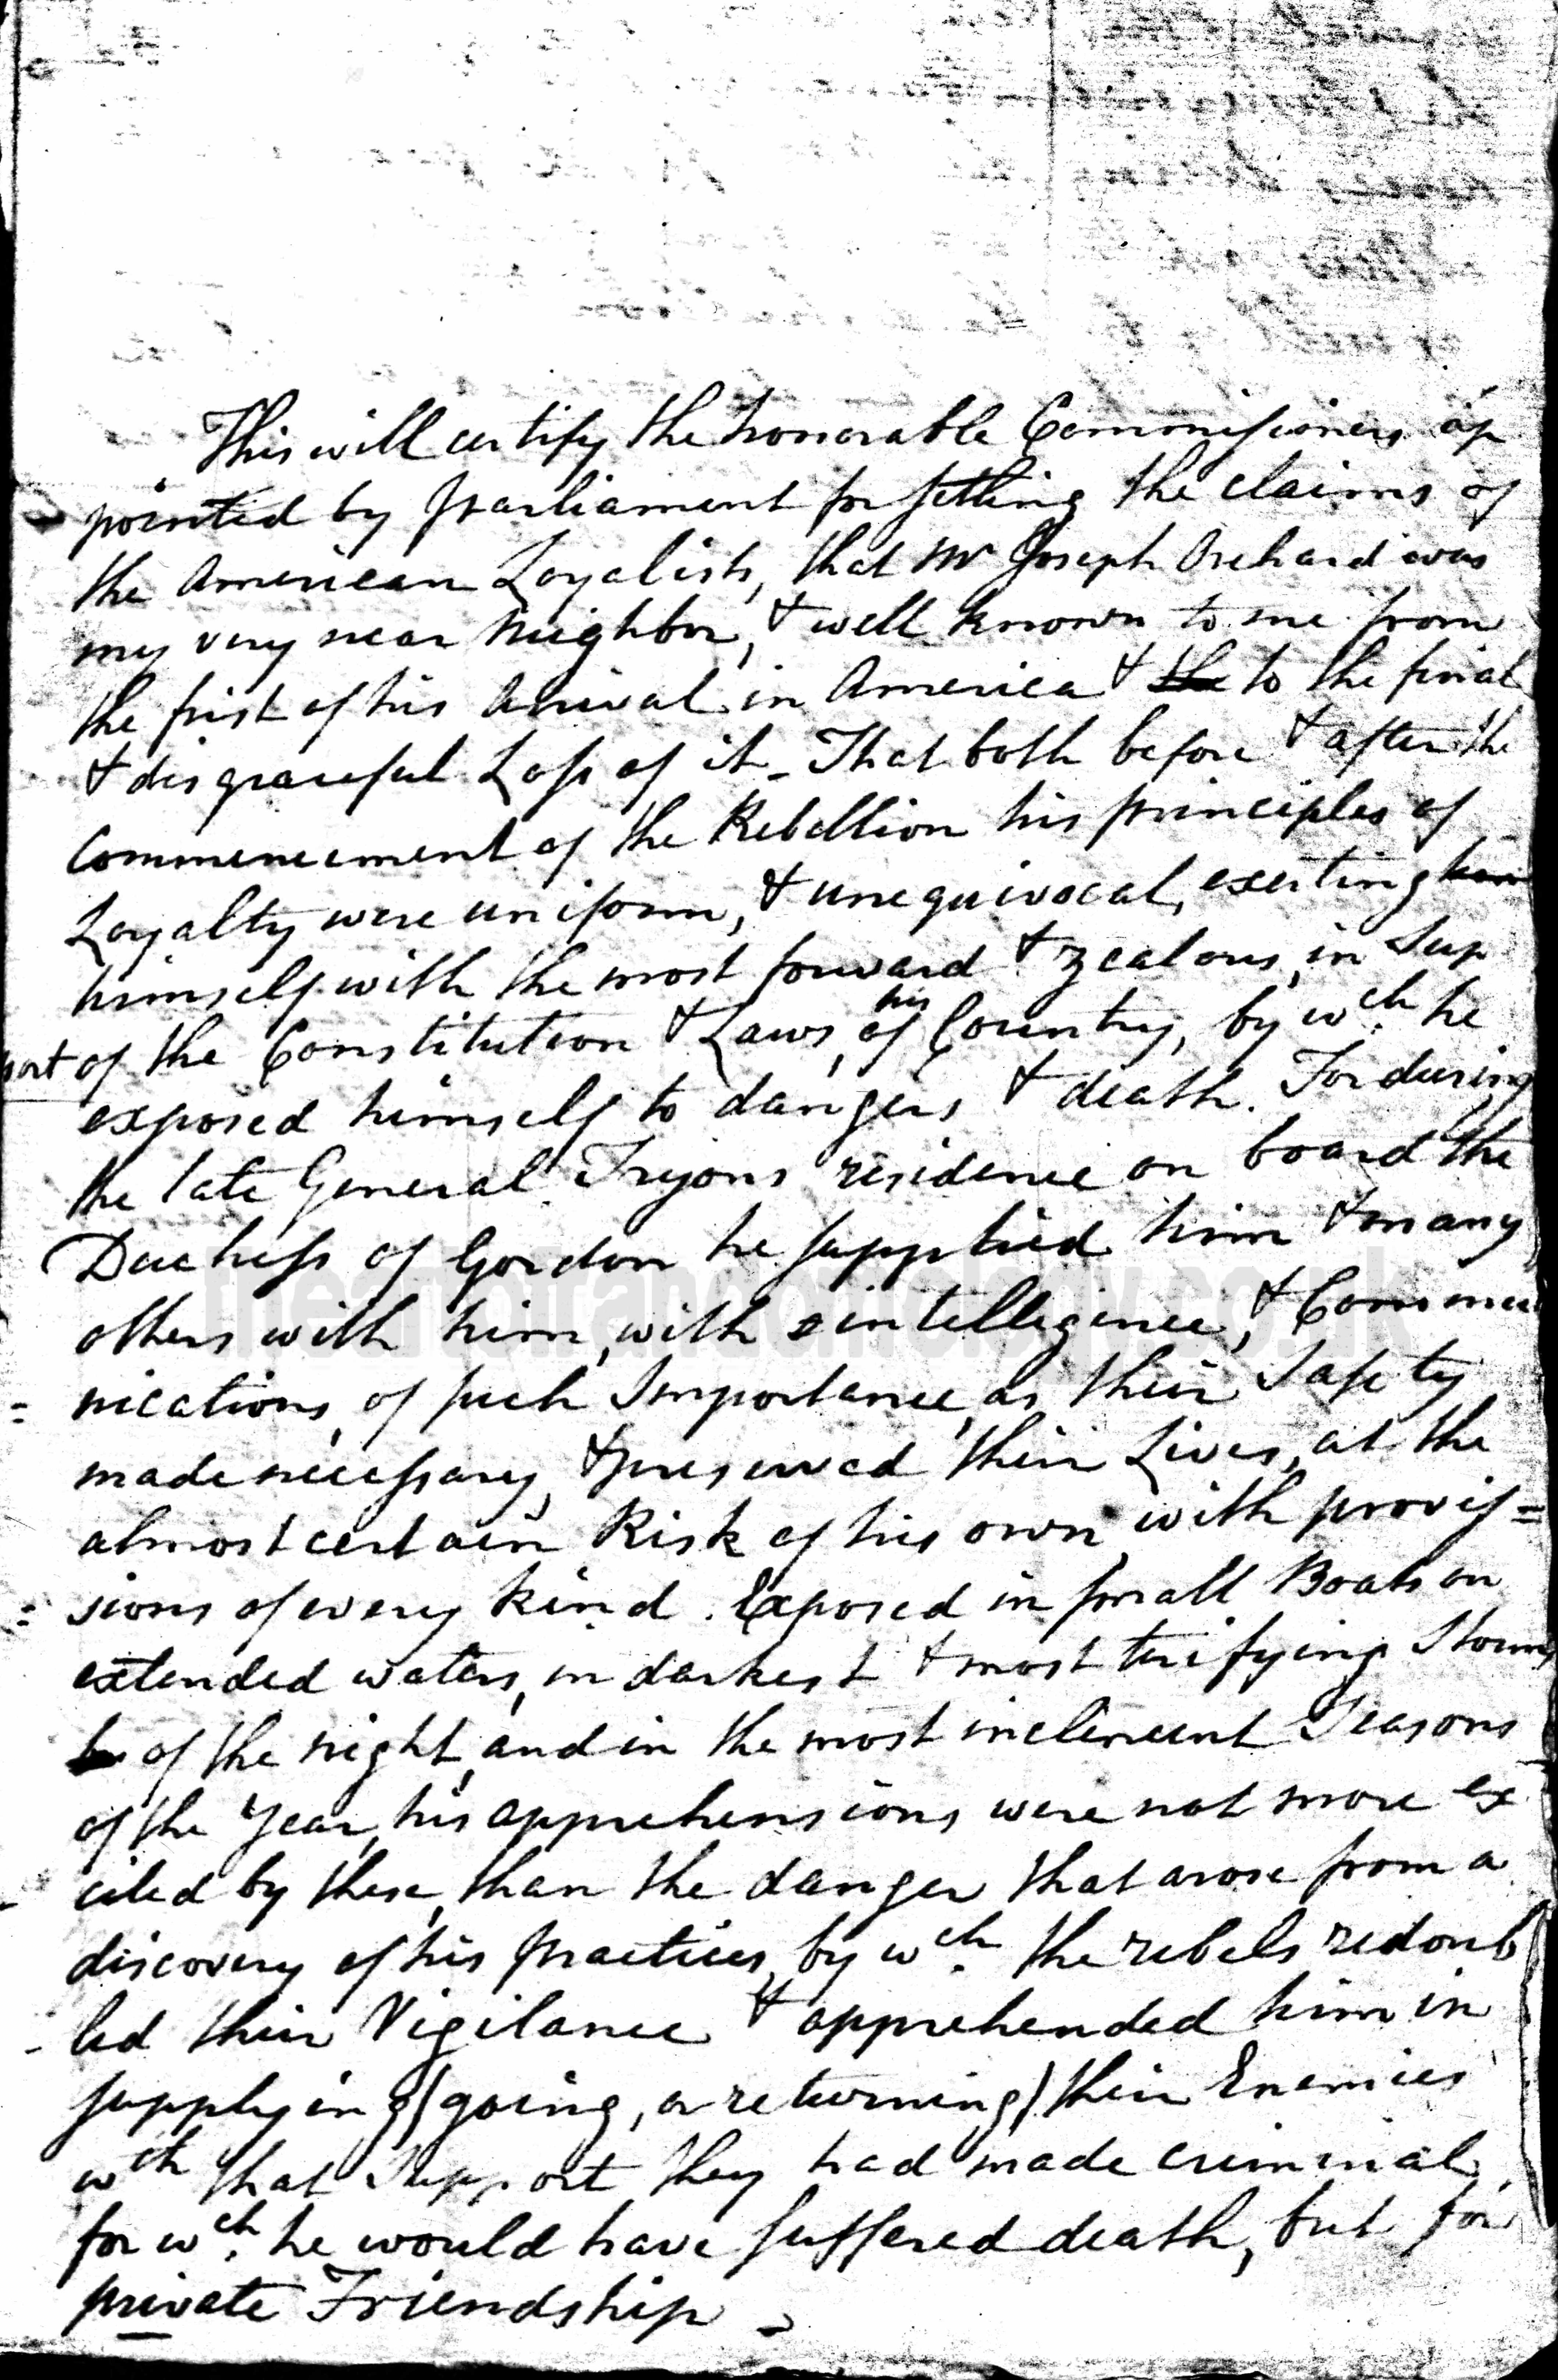 This will certify the honorable Commissioners ap
pointed by Parliament for settling the claims of
the American Loyalists, that Mr Joseph Orchard was
my very near Neighbor, & well known to me from
the first of his Arival in America & the to the final
& disgraceful Loss of it - That both before & after the
Commencement of the Rebellion his principles of
Loyalty were uniform, & unequivocal, exerting him
himself with the most forward & zealous, in Sup
port of the Constitution & Laws, of his Country, by wch. he
exposed himself to dangers & death. For during
the late General Tryons residence on board the
Duchess of Gordon he supplied him & many
others with him, with intelligence, & Commu
= nications, of such Importance, as their Safety
made necessary, & preserved their Lives, at the
almost certain Risk of his own, with provis =
= sions of every kind. Exposed in small Boats on
extended waters, in darkest & most terifying Storms
of the night, and in the most inclement Seasons
of the Year, his apprehensions were not more ex
- cited by these, than the danger that arose from a
discovery of his Practices, by wch. the rebels redoub
- led their Vigilance & apprehended him in
supplying (going, or returning) their Enemies
wth that Support they had made criminal,
for wch. he would have suffered death, but for
private Friendship -
theartofrandomology.co.uk